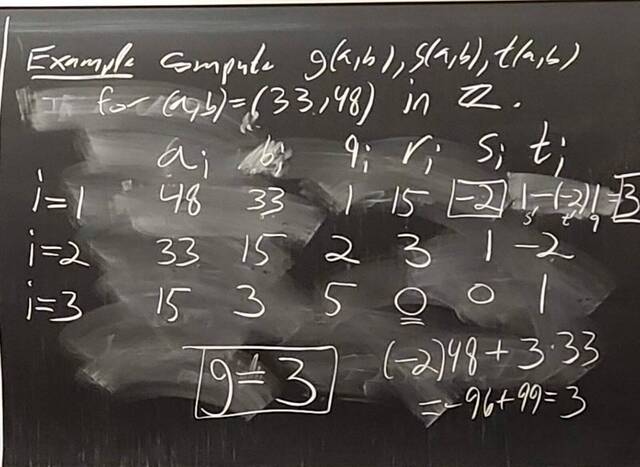 Example Compute g(a,b), s(a,b), t(a,b)
for (a,b)=(33,48) in ℤ.
aᵢ bᵢ qᵢ rᵢ sᵢ tᵢ
i=1 48 33 1 15 -2 1-(-2)1=3
s t q
i=2 33 15 2 3 1 -2
i=3 15 3 5 0 0 1
g=3 (-2)48+3·33
=-96+99=3